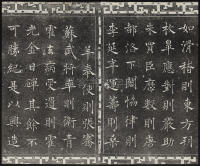 如滑稽則東方朔
枚皐應對則嚴助
朱買臣曆數則唐
都洛下閎協律則
李延年運籌則桑
羊奉使則張騫
蘇武將率則衛青
霍去病受遺則霍
光金日磾其餘不
可勝紀是以興造